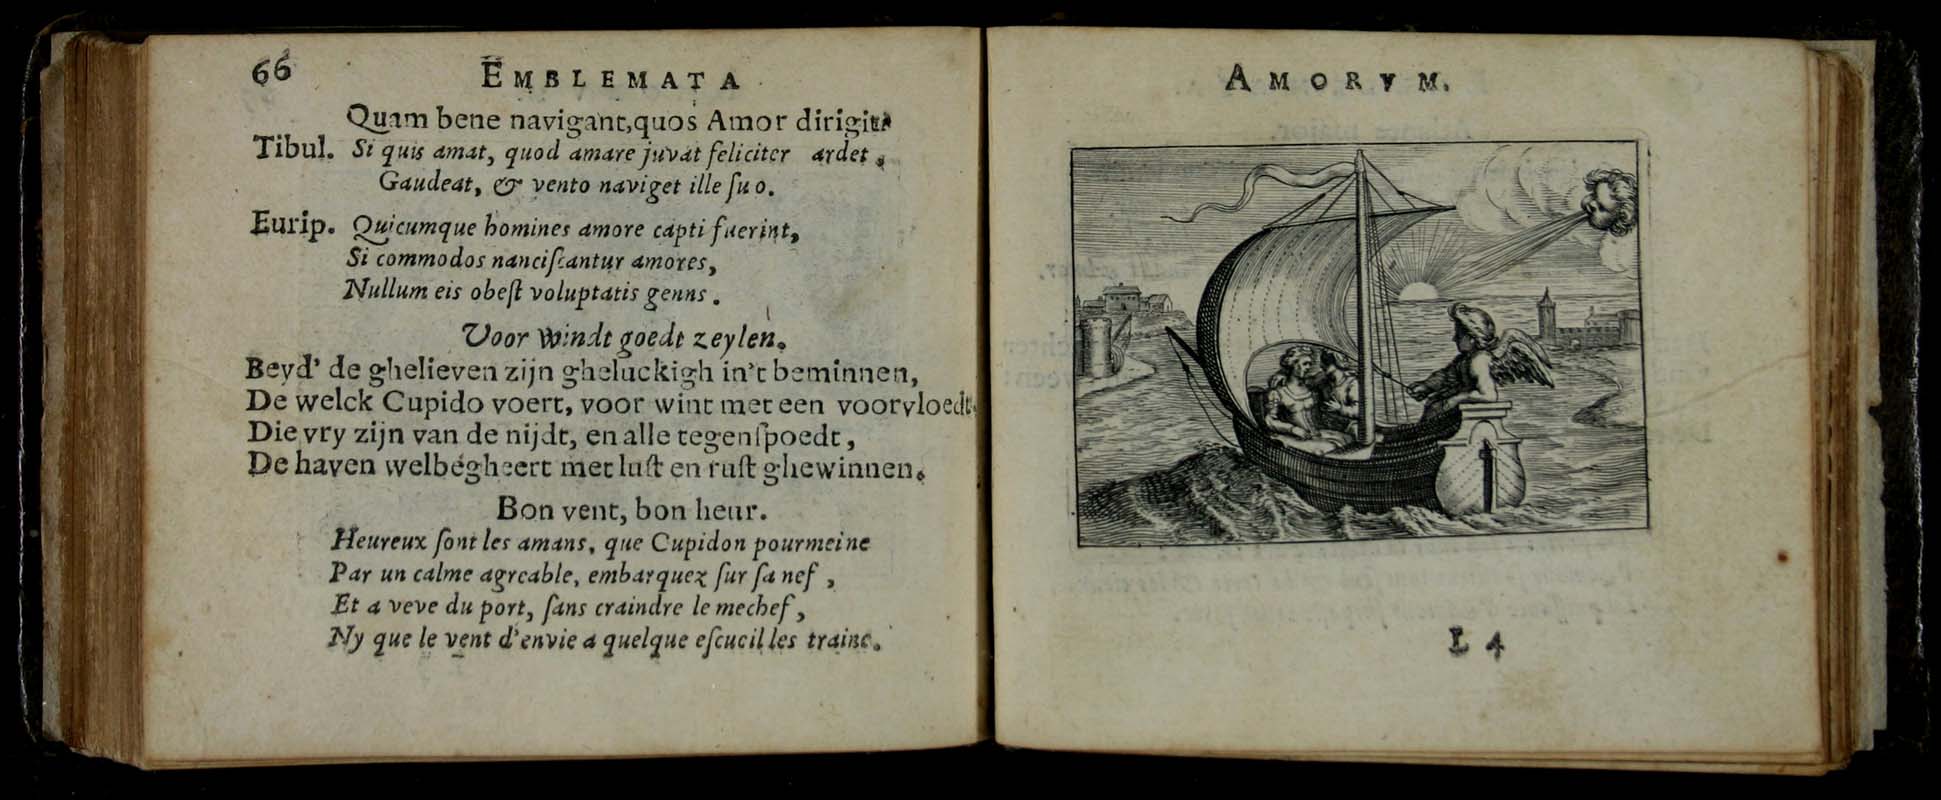 66
EMBLEMATA
Quam bene navigant, quos Amor dirigit.
Tibul. Si quis amat, quod amare juvat feliciter ardet,
Gaudeat, & vento naviget ille ſuo.
Eurip. Quicumque homines amore capti fuerint,
Si commodos nanciſcantur amores,
Nullum eis obeſt voluptatis genns.
Voor windt goedt zeylen.
Beyd' de ghelieven zijn gheluckigh in't beminnen,
De welck Cupido voert, voor wint met een voorvloedt.
Die vry zijn van de nijdt, en alle tegenſpoedt,
De haven welbegheert met luſt en ruſt ghewinnen.
Bon vent, bon heur.
Heureux ſont les amans, que Cupidon pourmeine
Par un calme agreable, embarquez ſur ſa nef,
Et a veve du port, ſans craindre le mechef,
Ny que le vent d'envie a quelque eſcueil les traine.
AMORVM.
L 4